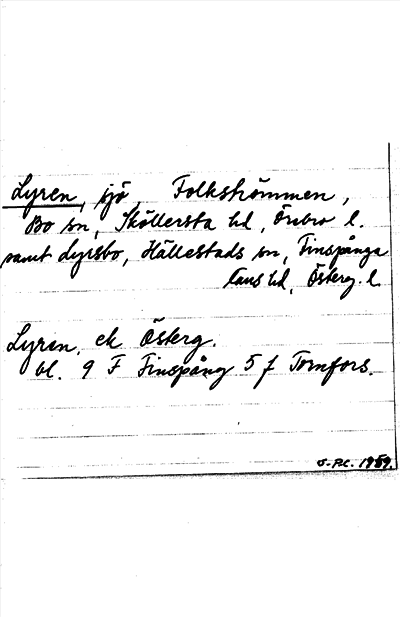 Lyren, sjö, Folkströmmen,
Bo sn, Sköllersta hd, Örebro l.
samt Lyrsbo, Hällestads sn, Finspånga
läns hd, Österg. l.
Lyren, ek Österg.
bl. 9 F Finspång 5 f Tomfors.
1959.